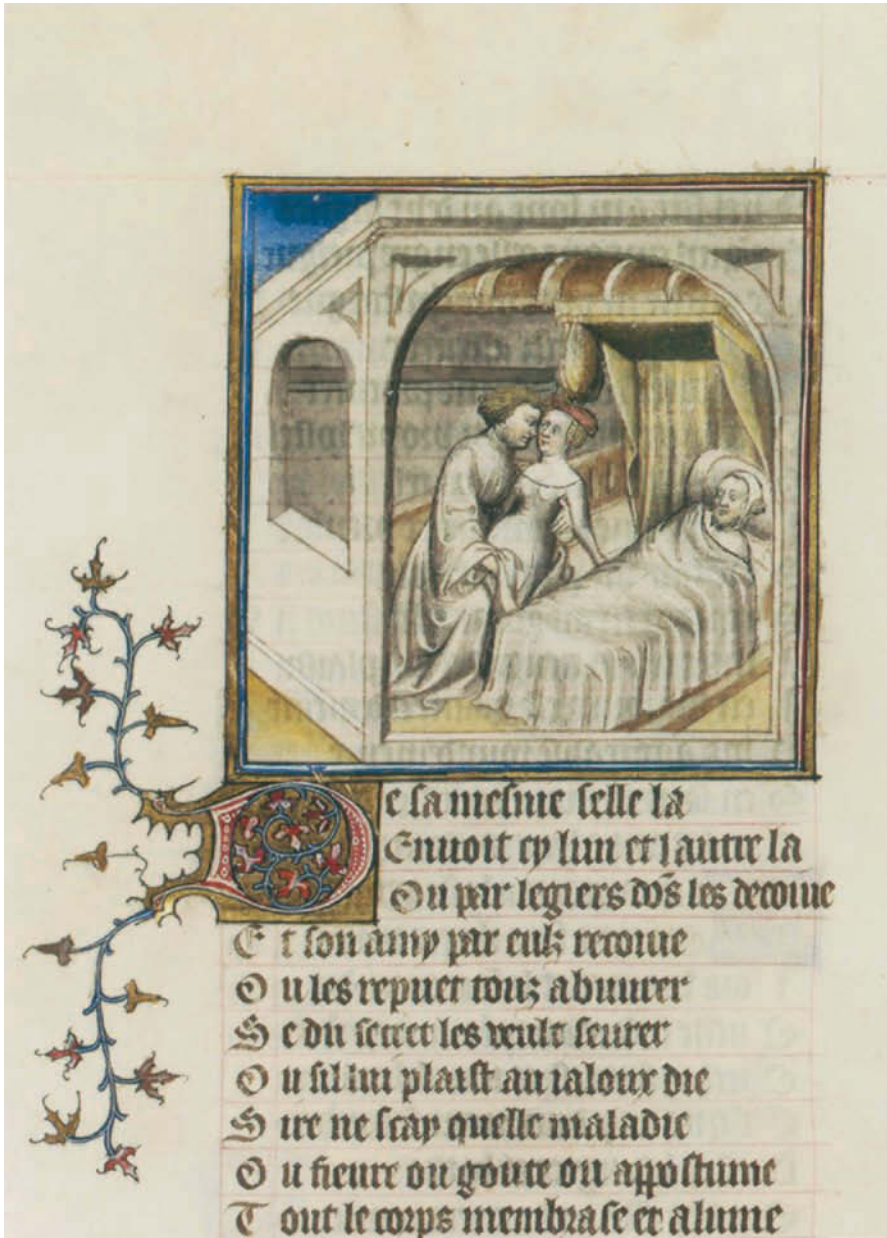 De sa mesme selle la
Enuoit cy lun et lautre la
Ou par legiers dõs les decoiue
Et son amy par eulz recoiue
Ou les repuet touz abuurer
Se du secret les veult seurer
Ou sil lui plaist au ialoux die
Sire ne scay quelle maladie
Ou fieure ou goute ou appostume
Tout le corps membrase et alume